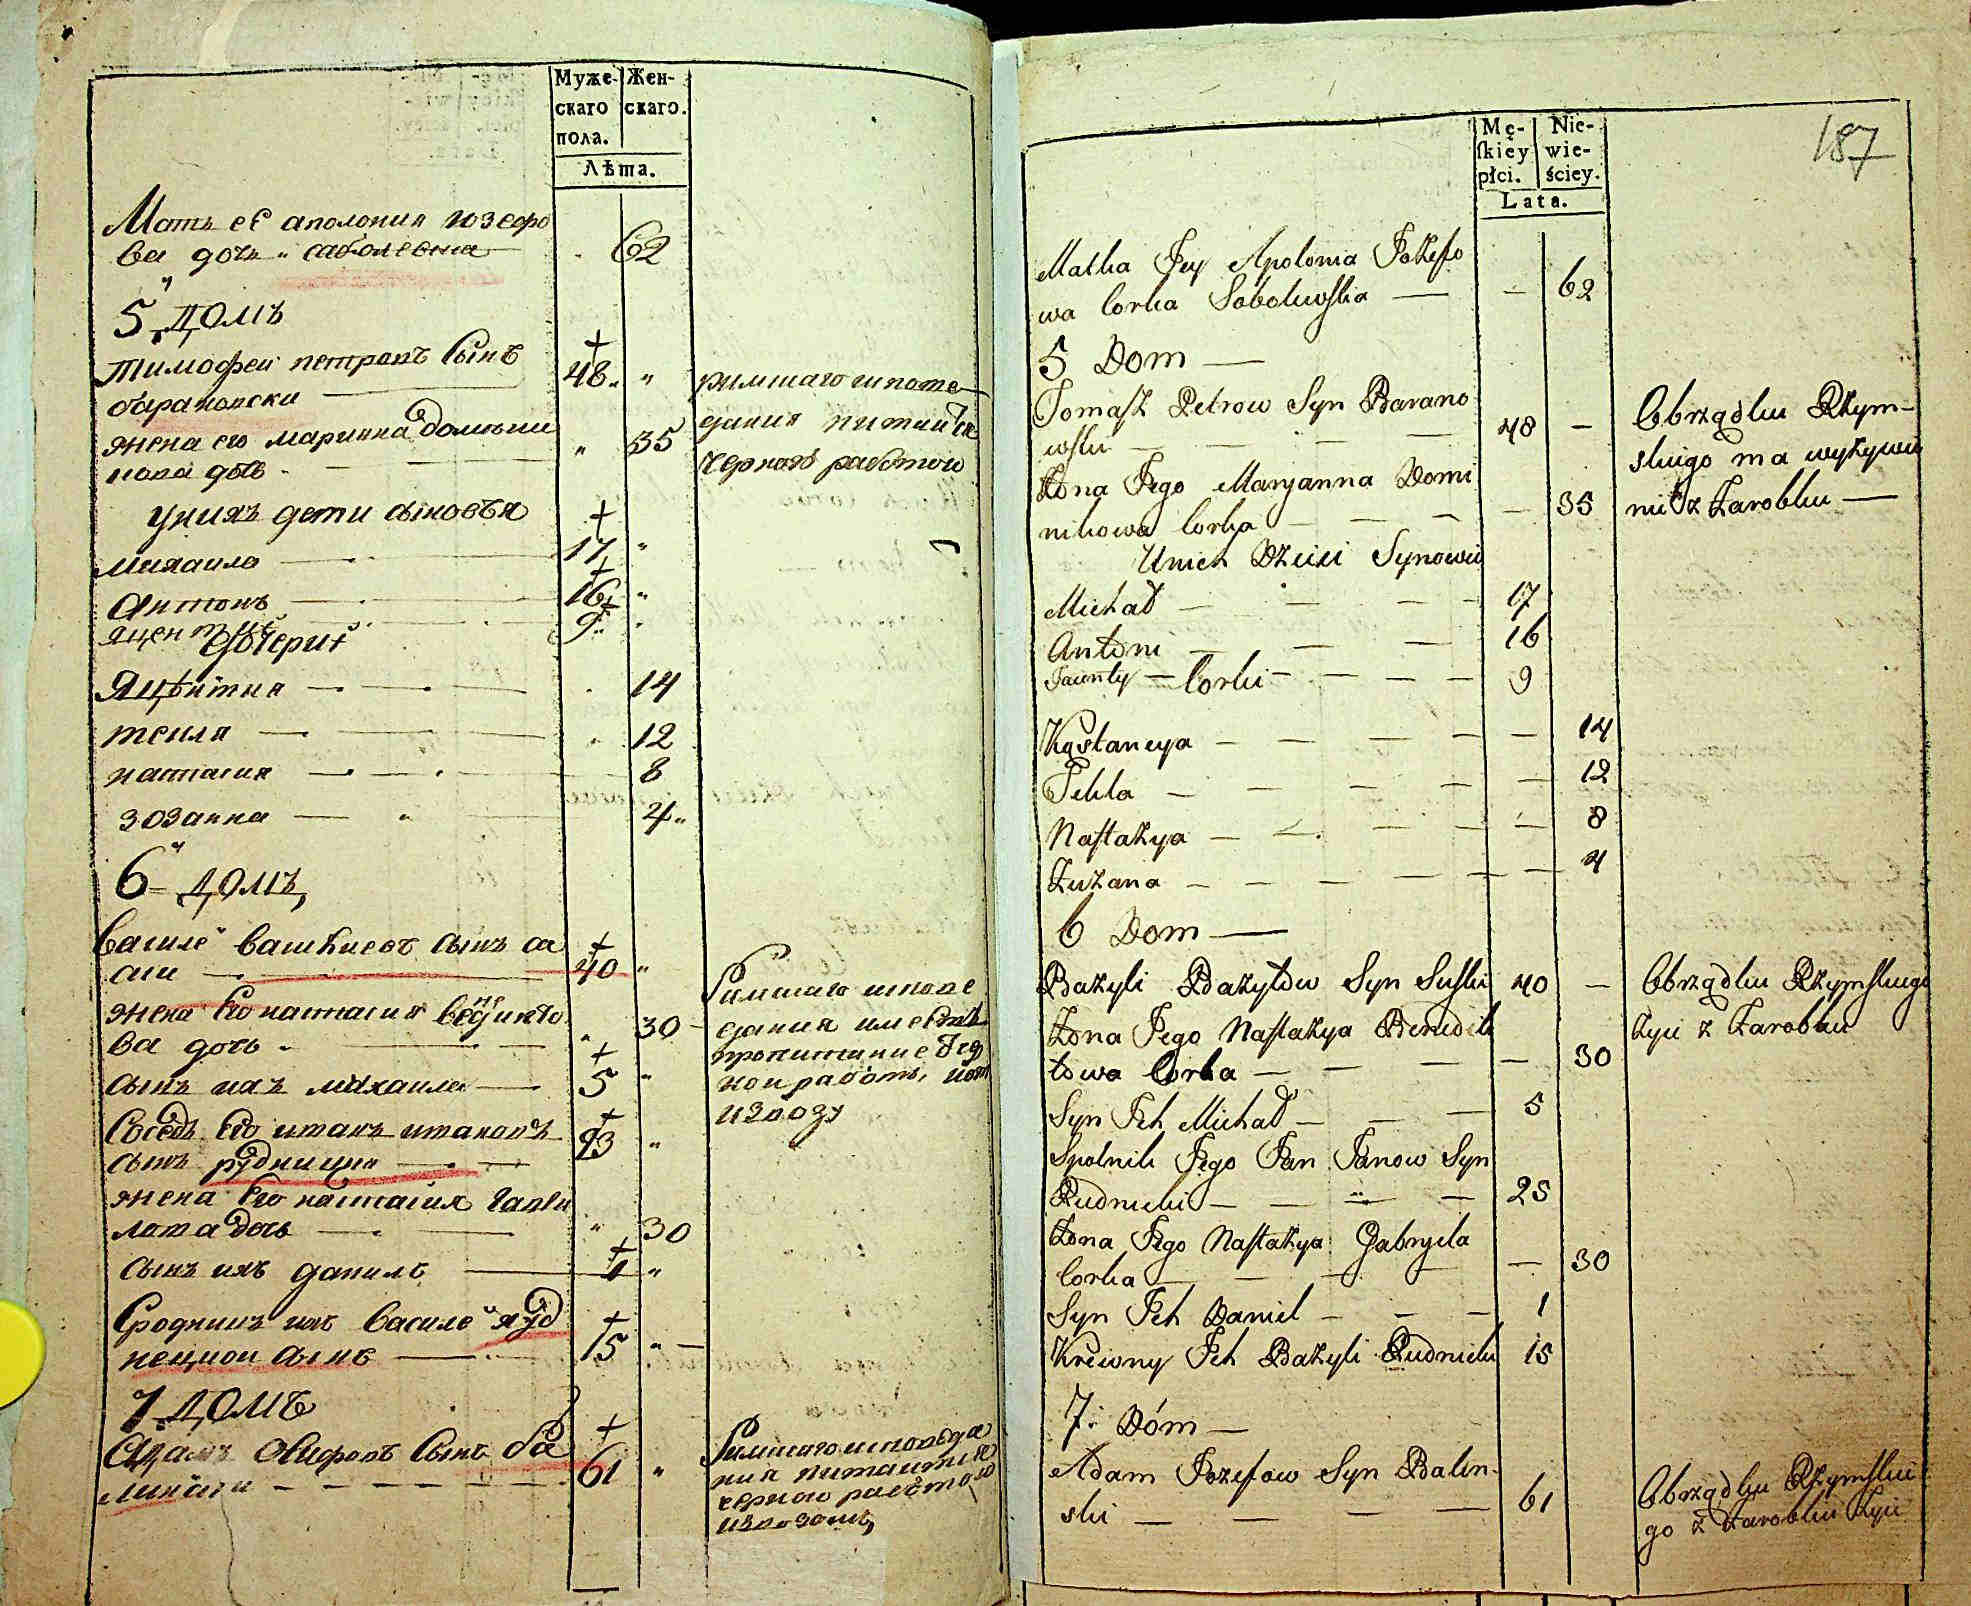 Муже-
скаго
пола.
Жен-
скаго.
Лѣта.
Мать ее аполония юзефо
ва дочь саболевна 62
5 Домъ
тимофеи петровъ Сынъ 48
барановски
жена его марияна домини 35
кова дочь
римшаго испове
дания питаитса
черною работою
у нихъ дети сыновья
михаила 17
Антонъ 16
яцентый 9
дочери
Яцентия 14
текля 12
настасия 8
зозанна 4
6 домъ
василей васильевъ сынъ са 40
жена Его настасия бенедикто 30
ва дочь
Римшаго испове
дания имеетъ
пропитание
работы
извозу
сынъ ихъ михаила 5
Соседъ Его иванъ ивановъ 23
сынъ рудницки
жена Его настасия гаври
лова дочь 30
сынъ ихъ данилъ 1
Сродникъ ихъ василей руд
нецкои сынъ 15
7 домъ
Адамъ Осифовъ Сынъ ба 61
лински
Римшаго исповеда
ния питаитса
черною работою
извозомъ
187
Mę-
ſkiey
płci.
Nie-
wie-
ściey.
Lata.
Matka Jey Apolonia Jozefo
wa Corka Sobolewska — — 62
5 Dom —
Tomaſz Petrow Syn Barano
wski — — — 48 —
Obrządku Rzym-
skiego ma wyżywie
nie z Zarobku —
Zona Jego Maryanna Domi
nikowa Corka — — — 35
Unich Dzieci Synowie
Michał — 17
Antoni — 16
Jacenty — Corki — 9
Kąstancya — 14
Tekla — 12
Naſtazya — 8
Zuzana — 4
6 Dom —
Bazyli Bazylów Syn Suski 40 —
Obrządku Rzymſkiego
Zyie z Zarobku
Zona Jego Naſtazya Benedik
towa Corka — 30
Syn Jch Michał — 5
Spolnik Jego Jan Janow Syn
Rudnicki — 25
Zona Jego Naſtazya Gabryela
Corka — 30
Syn Jch Daniel — 1
Krewny Jch Bazyli Rudnicki 15
7: Dóm —
Adam Jozefow Syn Balin-
ski — 61
Obrządku Rzymſkie
go z Zarobku Zyie